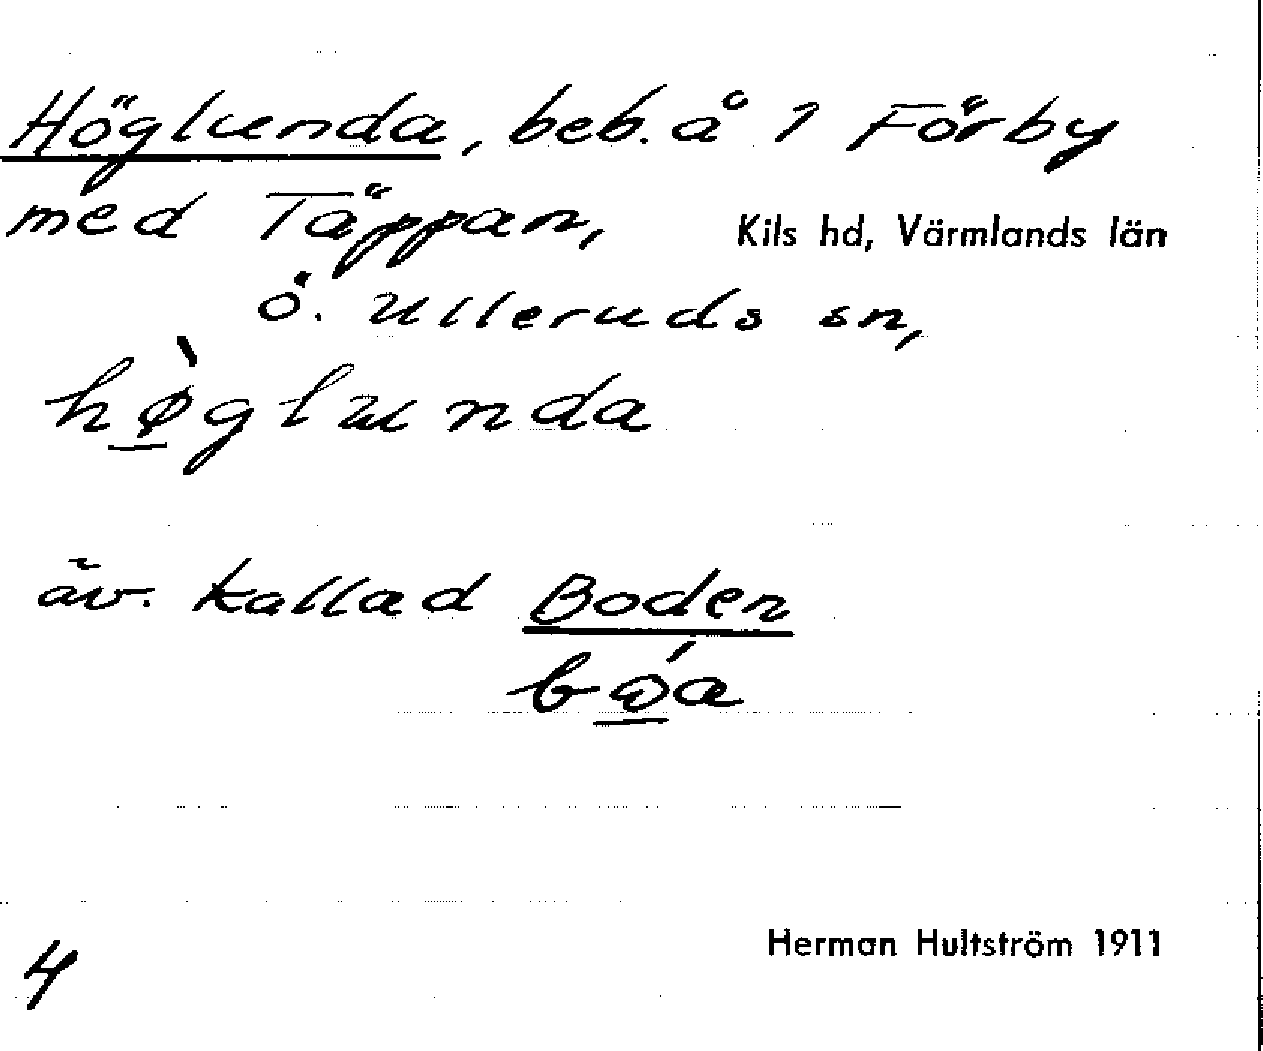 Höglunda, beb. å 1 Förby
med Täppan,
Kils hd, Värmlands län
Ö. Ulleruds sn,
hø̀glunda
äv. kallad Boden
bɷ́a
Herman Hultström 1911
4